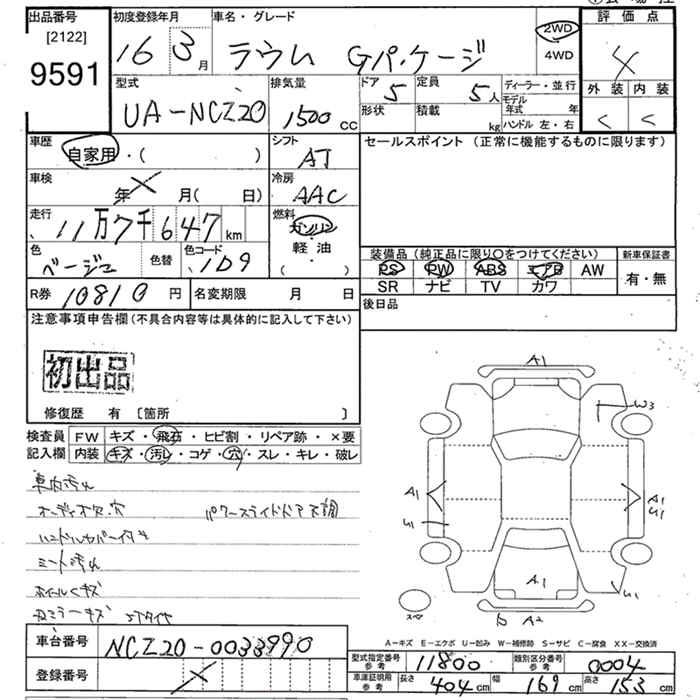 出品番号 初度登録年月 車名・グレード 評価点
[2122] 16 3月 ラウム Gパッケージ 2WD 4
9591 4WD
型式 排気量 ドア 5 定員 5人 ディーラー・並行 外装 内装
UA-NCZ20 1500cc 形状 積載 kg モデル年式 年 C C
ハンドル 左・右
車歴 シフト セールスポイント (正常に機能するものに限ります)
自家用・( ) AT
車検 冷房
年 × 月( 日) AAC
走行 燃料
11万7千647km ガソリン
軽・油
( )
色 色替 色コード 装備品 (純正品に限り○をつけてください) 新車保証書
ベージュ 1D9 PS PW ABS エアB AW 有・無
R券 10810円 名変期限 月 日 SR ナビ TV カワ
注意事項申告欄(不具合内容等は具体的に記入して下さい) 後日品
初出品
修復歴 有 [箇所 ]
検査員 FW キズ・飛石・ヒビ割・リペア跡・×要
記入欄 内装 キズ・汚レ・コゲ・穴・スレ・キレ・破レ
車内汚れ
オーディオ欠.穴 パワースライドドア不調
シート汚れ
ホイールキズ
A1
W3
A1 A1
U1 U1
A1
U1
スペア
b A2
A-キズ E-エクボ U-凹み W-補修跡 S-サビ C-腐食 XX-交換済
車台番号 NCZ20-0033990
登録番号 ×
型式指定番号 参考 11800 類別区分番号 参考 0004
車庫証明用 参考 長さ 404cm 幅 169cm 高さ 153cm